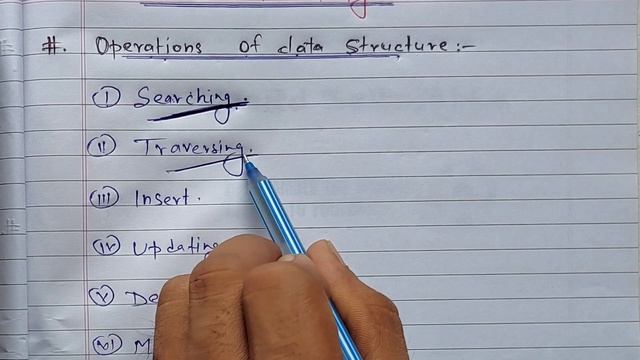 #. Operations of data Structure:-
(I) Searching.
(II) Traversing.
(III) Insert.
(IV) Updating
(V) De
(VI) M